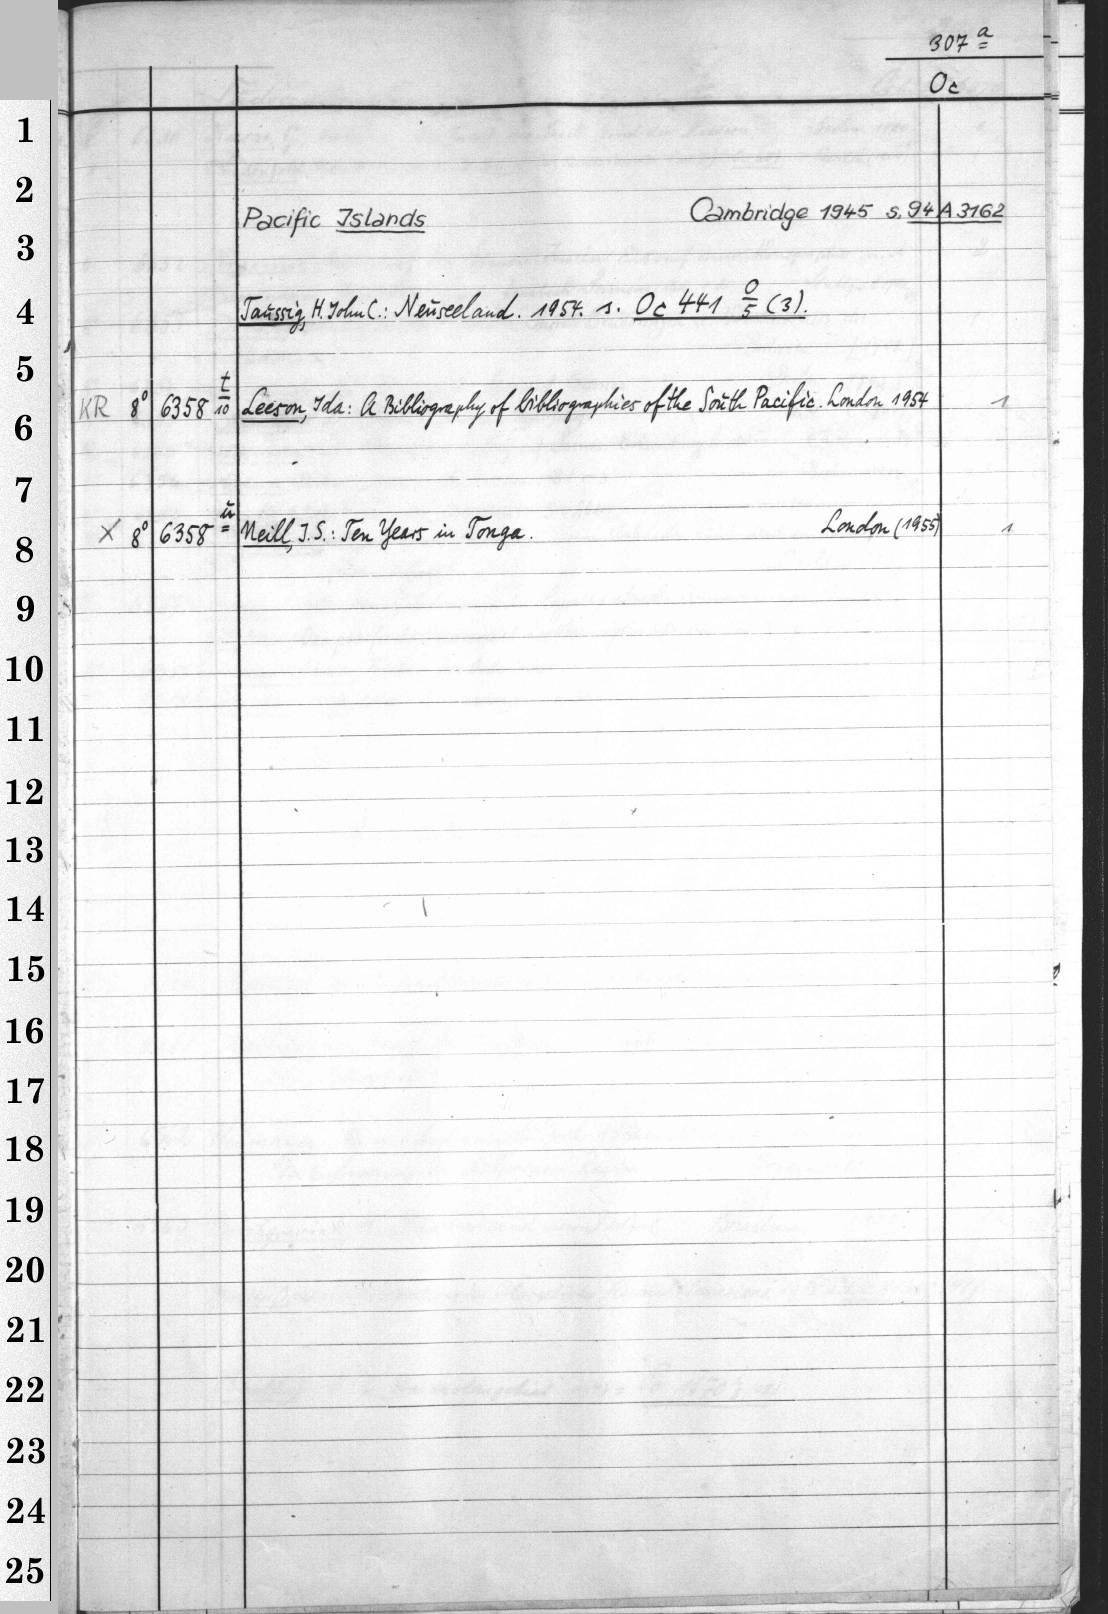 307 a
Oc
1
2
Pacific Islands Cambridge 1945 s. 94 A 3162
3
4 Taussig, H. John C.: Neuseeland. 1954. s. Oc 441 0/5 (3).
5
KR 8° 6358 t/10 Leeson, Ida: A Bibliography of bibliographies of the South Pacific. London 1954 1
6
7
X 8° 6358 u Neill, J.S.: Ten Years in Tonga. London (1955) 1
8
9
10
11
12
13
14
15
16
17
18
19
20
21
22
23
24
25